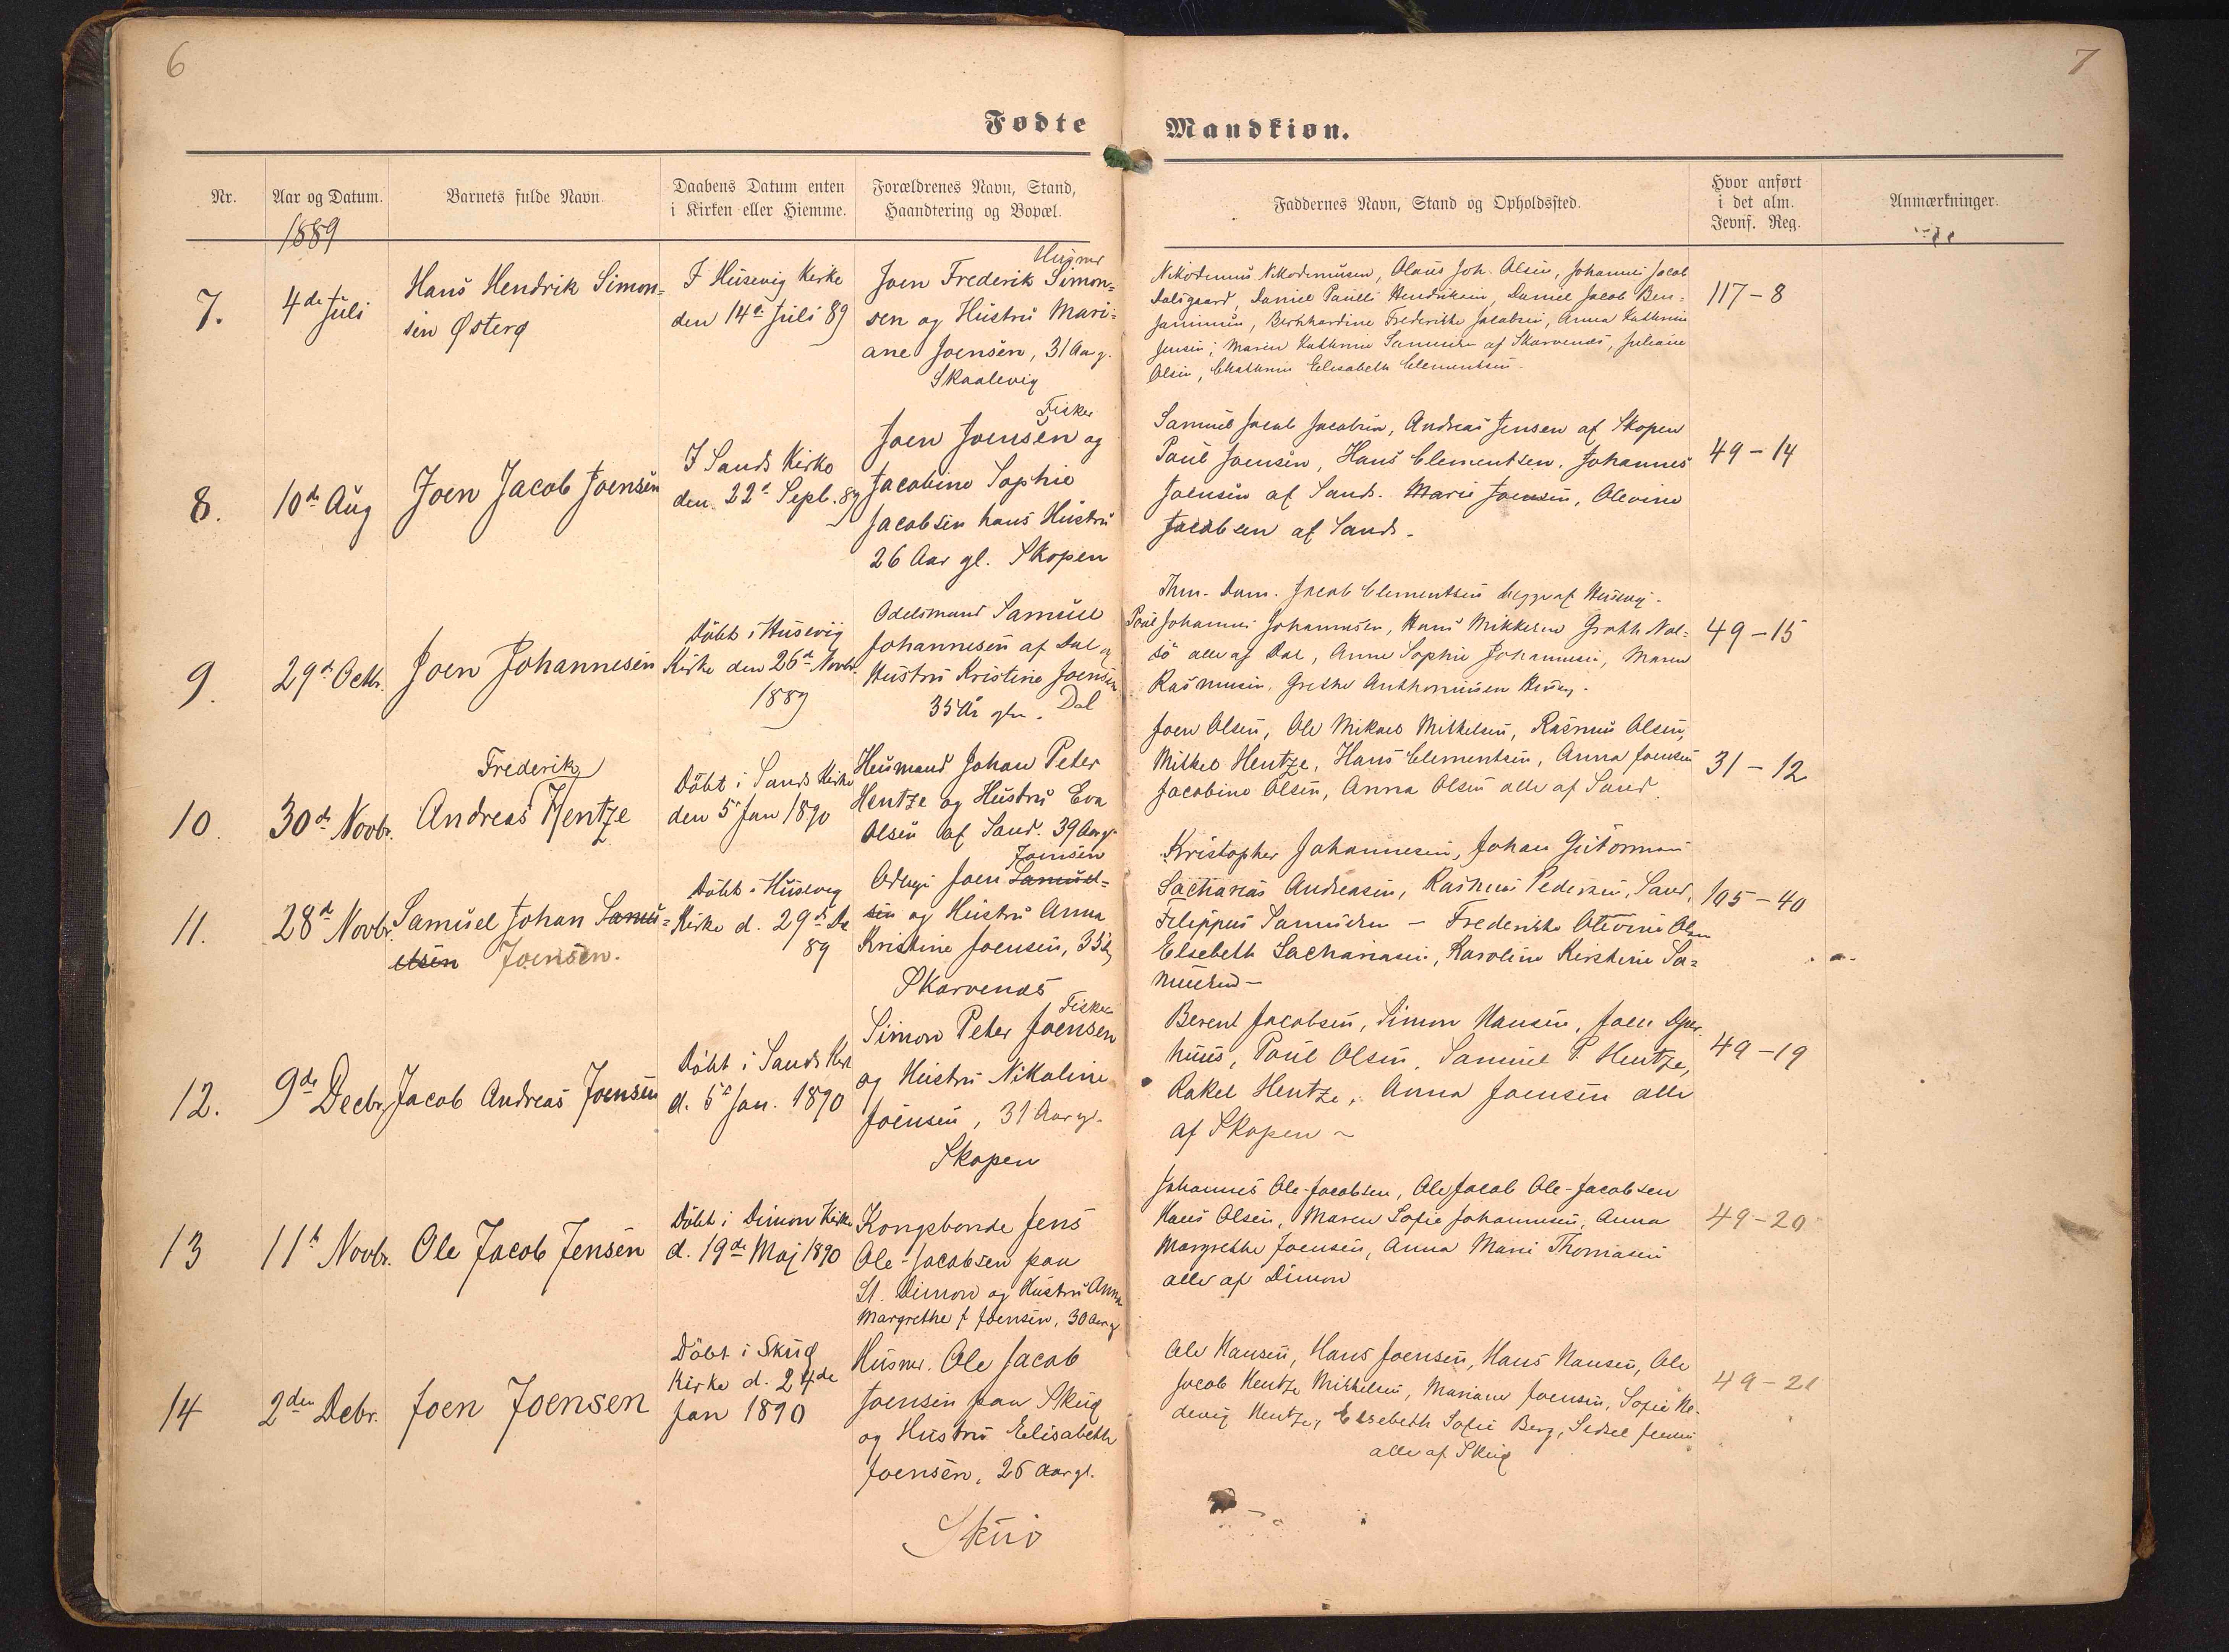 6
7
Fødte Mandkiøn.
Nr.
Aar og Datum.
Barnets fulde Navn.
Daabens Datum enten
i Kirken eller Hiemme.
Forældrenes Navn, Stand,
Haandtering og Bopæl.
Faddernes Navn, Stand og Opholdssted.
Hvor anført
i det alm.
Jevnf. Reg.
Anmærkninger.
1889
7.
4de Juli
Hans Hendrik Simon=
sen Østerø
I Husevig Kirke
den 14de Juli 89
Husmd
Joen Frederik Simon=
sen og Hustru Mari=
ane Joensen, 31 Aar g.
Skaalevig
Nikodemus Nikodemusen, Olaus Joh. Olsen, Johannes Jacob
Dalsgaard, Daniel Paulli Hendriksen, Daniel Jacob Ben=
jaminsen, Frederikke Jacobsen, Anna Kathrine
Jensen, Maren Kathrine Samuelsen af Skarvenæs, Juliane
Olsen, Elisabeth Clementsen.
117-8
8.
10de Aug
Joen Jacob Joensen
I Sands Kirke
den 22de Septb. 89
Fisker
Joen Joensen og
Jacobine Sophie
Jacobsen hans Hustru
26 Aar gl. Skopen
Samuel Jacob Jacobsen, Andreas Jensen af Skopen
Poul Joensen, Hans Clementsen. Johannes
Joensen af Sand. Marie Joensen, Olevine
Jacobsen af Sand.
49-14
9.
29de Octb.
Joen Johannesen
Döbt i Husevig
Kirke den 26de Novbr.
1889
Odelsmand Samuel
Johannesen af Dal og
Hustru Kristine Joensen
35 År gln. Dal
Thm. Dam. Jacob Clementsen begge af Husevig.
Poul Johannes Johannesen, Hans Mikkelsen Groth Nol=
sö alle af Dal, Anne Sophie Johannesen, Maren
Rasmusen, Grethe Anthoniusen Husevg.
49-15
10.
30de Novbr.
Frederik
Andreas Hentze
Döbt i Sands Kirke
den 5 Jan 1890
Husmand Johan Peter
Hentze og Hustru Eva
Olsen af Sand. 39 Aar gl.
Joen Olsen, Ole Mikael Mikkelsen, Rasmus Olsen,
Mikkel Hentze, Hans Clementsen, Anna Joensen
Jacobine Olsen, Anna Olsen alle af Sand
31-12
11.
28de Novbr.
Samuel Johan Samu=
elsen Joensen.
Döbt i Husevig
Kirke d. 29de De
89
Joensen
Joen Samuel=
sen og Hustru Anna
Kristine Joensen, 35
Skarvenæs
Kristopher Johannesen, Johan Gutorman
Sacharias Andreasen, Rasmus Pedersen, Sand,
Filippus Samuelsen - Frederikke Olevine Olsen
Elsebeth Sachariasen, Karoline Kirstine Sa=
muelsen -
105-40
12.
9de Decbr.
Jacob Andreas Joensen
Döbt i Sands Kirk
d. 5te Jan. 1890
Fisker
Simon Peter Joensen
og Hustru Nikoline
Joensen, 31 Aar gl.
Skopen
Berent Jacobsen, Simon Hansen, Joen Djur
huus, Poul Olsen, Samuel P. Hentze,
Rakel Hentze, Anna Joensen alle
af Skopen -
49-19
13
11te Novbr.
Ole Jacob Jensen
Döbt i Dimon Kirke
d. 19de Maj 1890
Kongsbonde Jens
Ole-Jacobsen paa
St. Dimon og Hustru Anna
Margrethe f. Joensen, 30 Aar g
Johannes Ole-Jacobsen, Ole Jacob Ole-Jacobsen
Hans Olsen, Maren Sofie Johannesen, Anna
Margrethe Joensen, Anna Marie Thomasen
alle af Dimon
49-20
14
2den Debr.
Joen Joensen
Döbt i Skuø
Kirke d. 24de
Jan 1890
Husmd. Ole Jacob
Joensen paa Skuø
og Hustru Elisabeth
Joensen, 25 Aar gl.
Skuø
Ole Hansen, Hans Joensen, Hans Hansen, Ole
Jacob Hentze Mikkelsen, Mariane Joensen, Sofie He-
devig Hentze, Elsebeth Sofie Berg, Sidsel Jensen
alle af Skuø
49-21